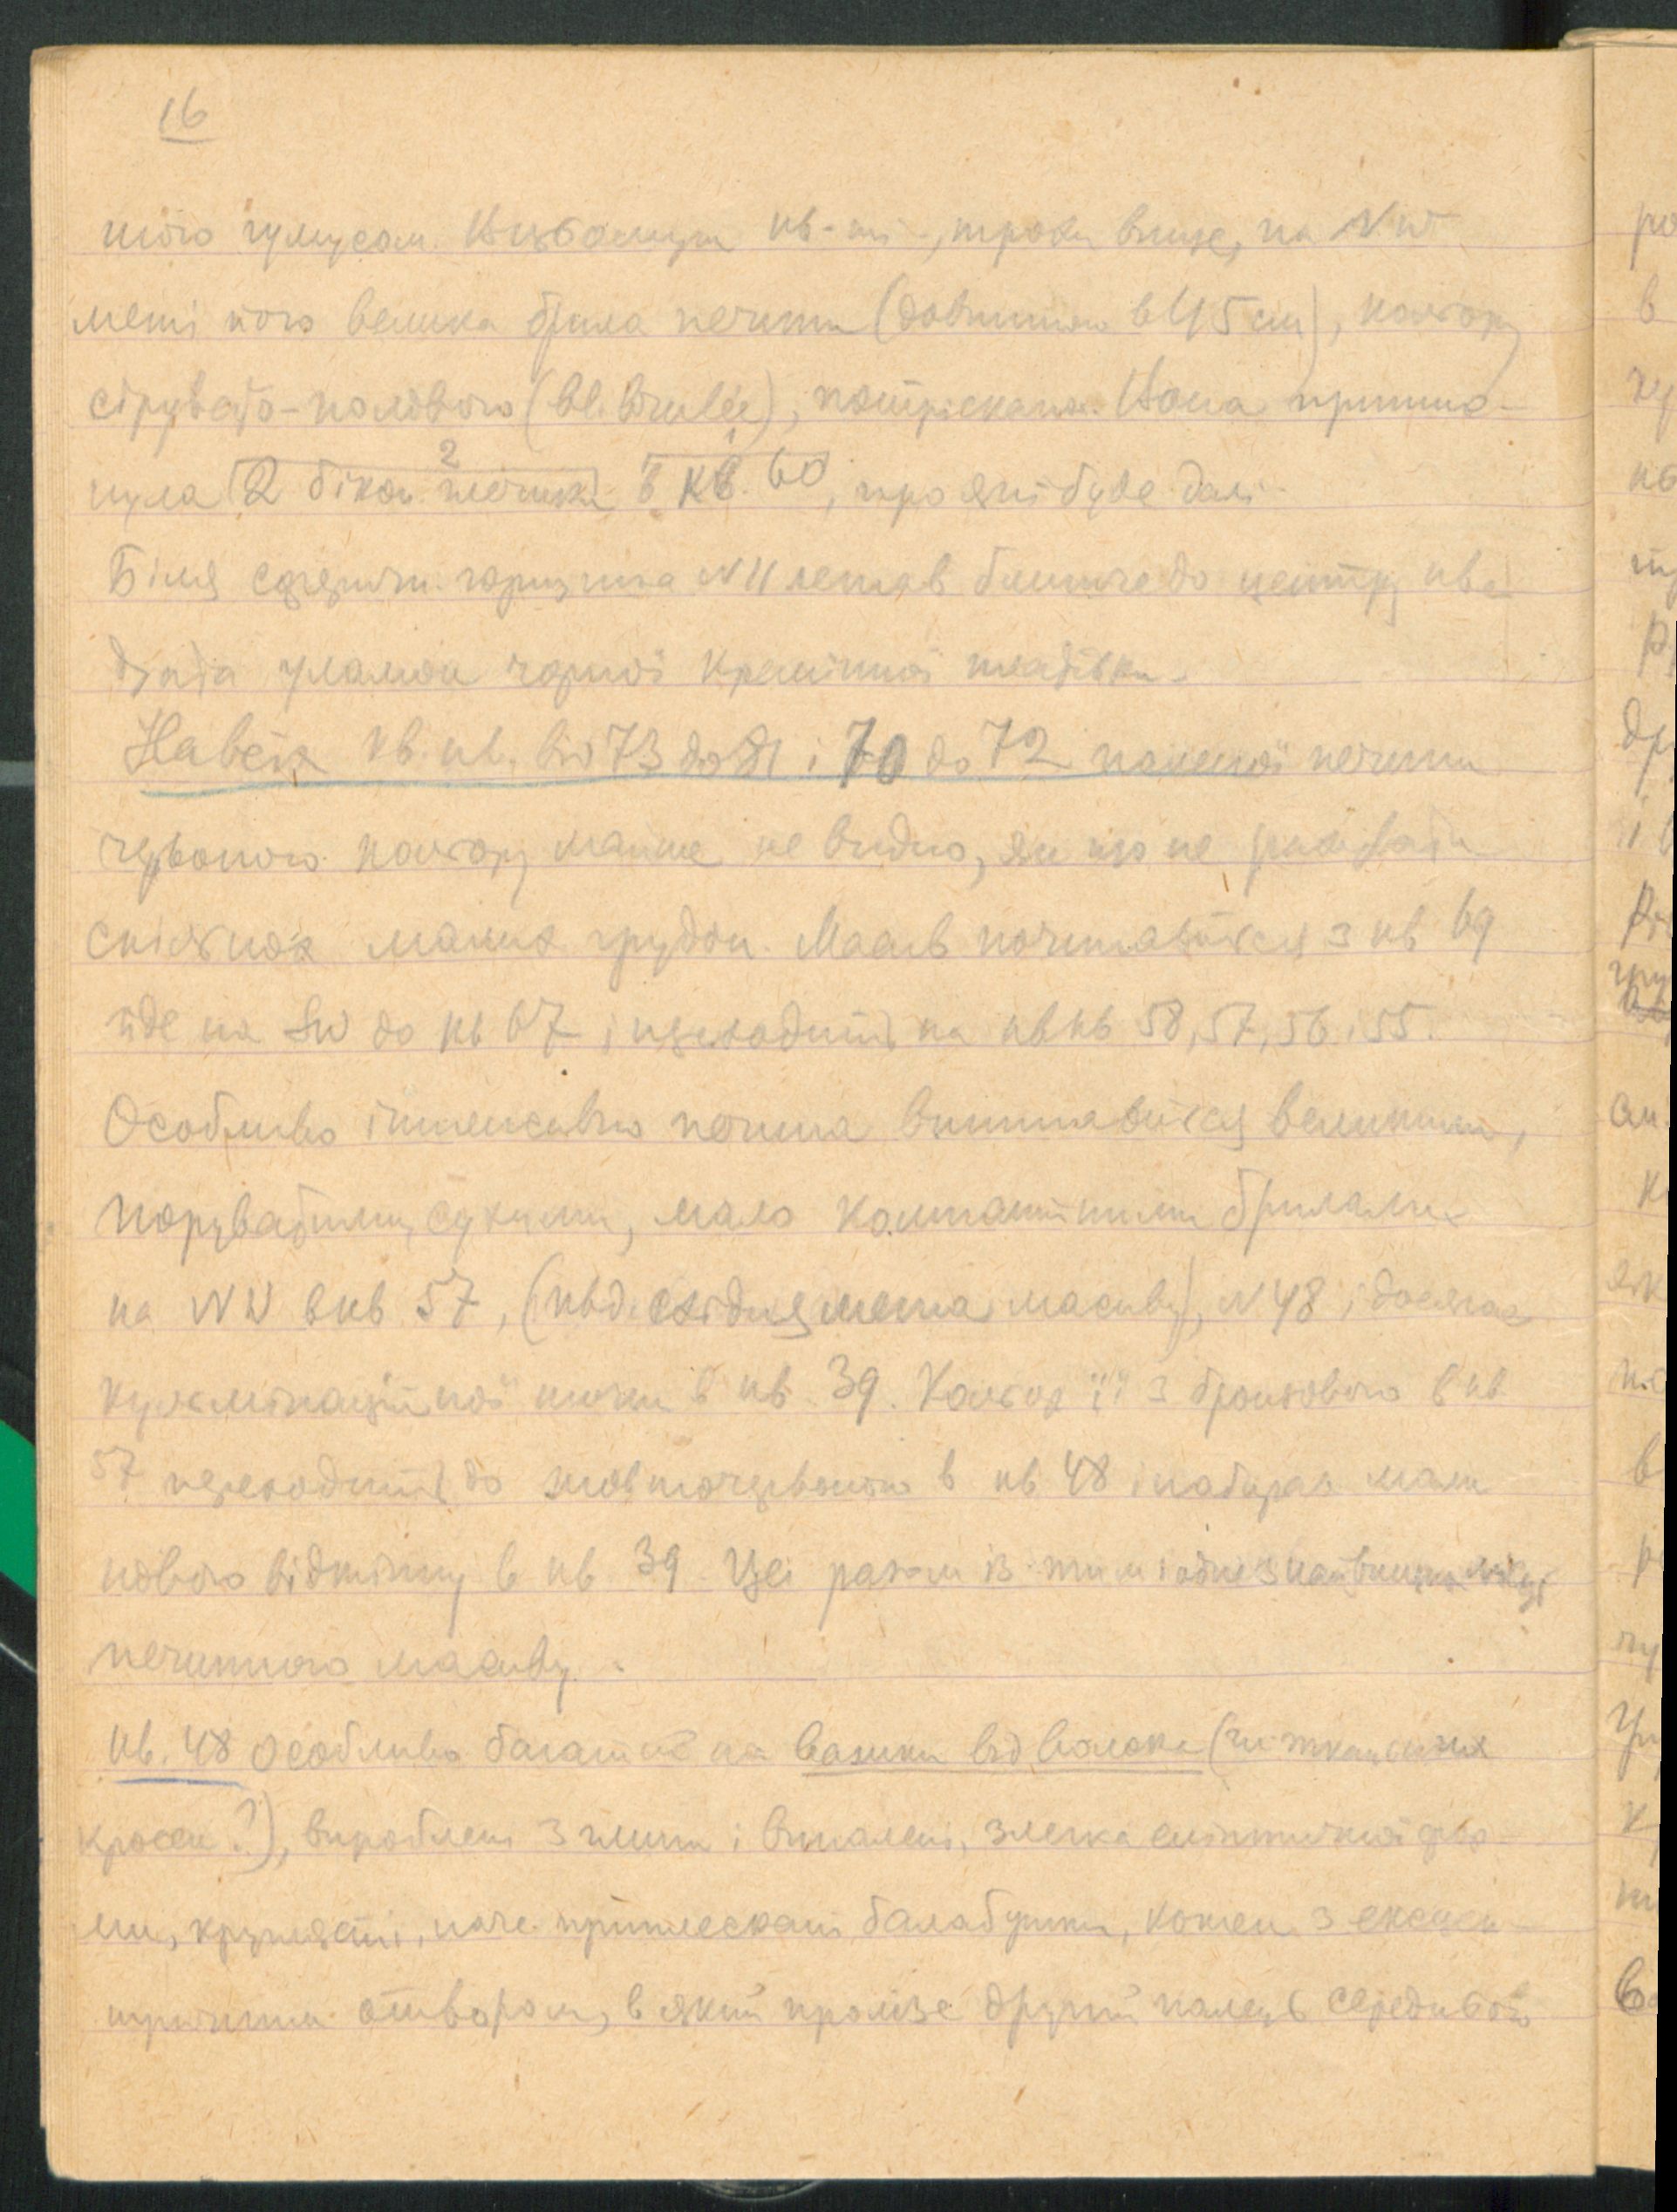 16
ного гумусом. В цьому ж кв-ті, трохи вище, на NW
межі його велика брила печини (довжиною в 45 см), кольору
сірувато-полового (bl. brulée), потріскана. Вона прино-
нула 2 бікон. 2 в кв. 60, про які буде далі.
Біля середини горщика N 11 лежав ближче до центру ква-
драта уламок чорної кремінної
На всіх кв. кв. від 73 до 81 і 70 до 72 паленої печини
червоного кольору майже не видно, як що не рахувати
скількох малих грудок. Масив починається з кв 69
йде на SW до кв 67 і переходить на квкв 58, 57, 56 і 55.
Особливо інтенсивно печина виявляється великими,
поруватими, сухими, мало компактними брилами
на NW в кв 57, (півд. східня межа масиву), N 48 і досягає
кульмінаційної точки в кв 39. Кольор її з бронзового в кв
57 переходить до жовточервоного в кв 48 і набирає
нового відтінку в кв 39. Це разом із тим і одне з найвищих місць
печинного масиву.
Кв. 48 особливо багатий на важки від волока (чи ткацьких
кросен?), вироблені з глини і випалені, злегка еліптичної фор-
ми, круглясті, наче приплескані балабушки, кожен з ексцен-
тричним отвором, в який пролізе другий палець середнього